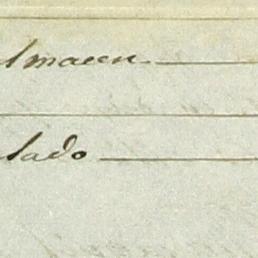 lmacen
lado